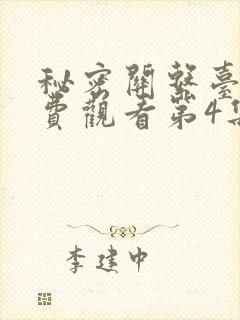 秘密關繫臺
費觀看第4集
李建中